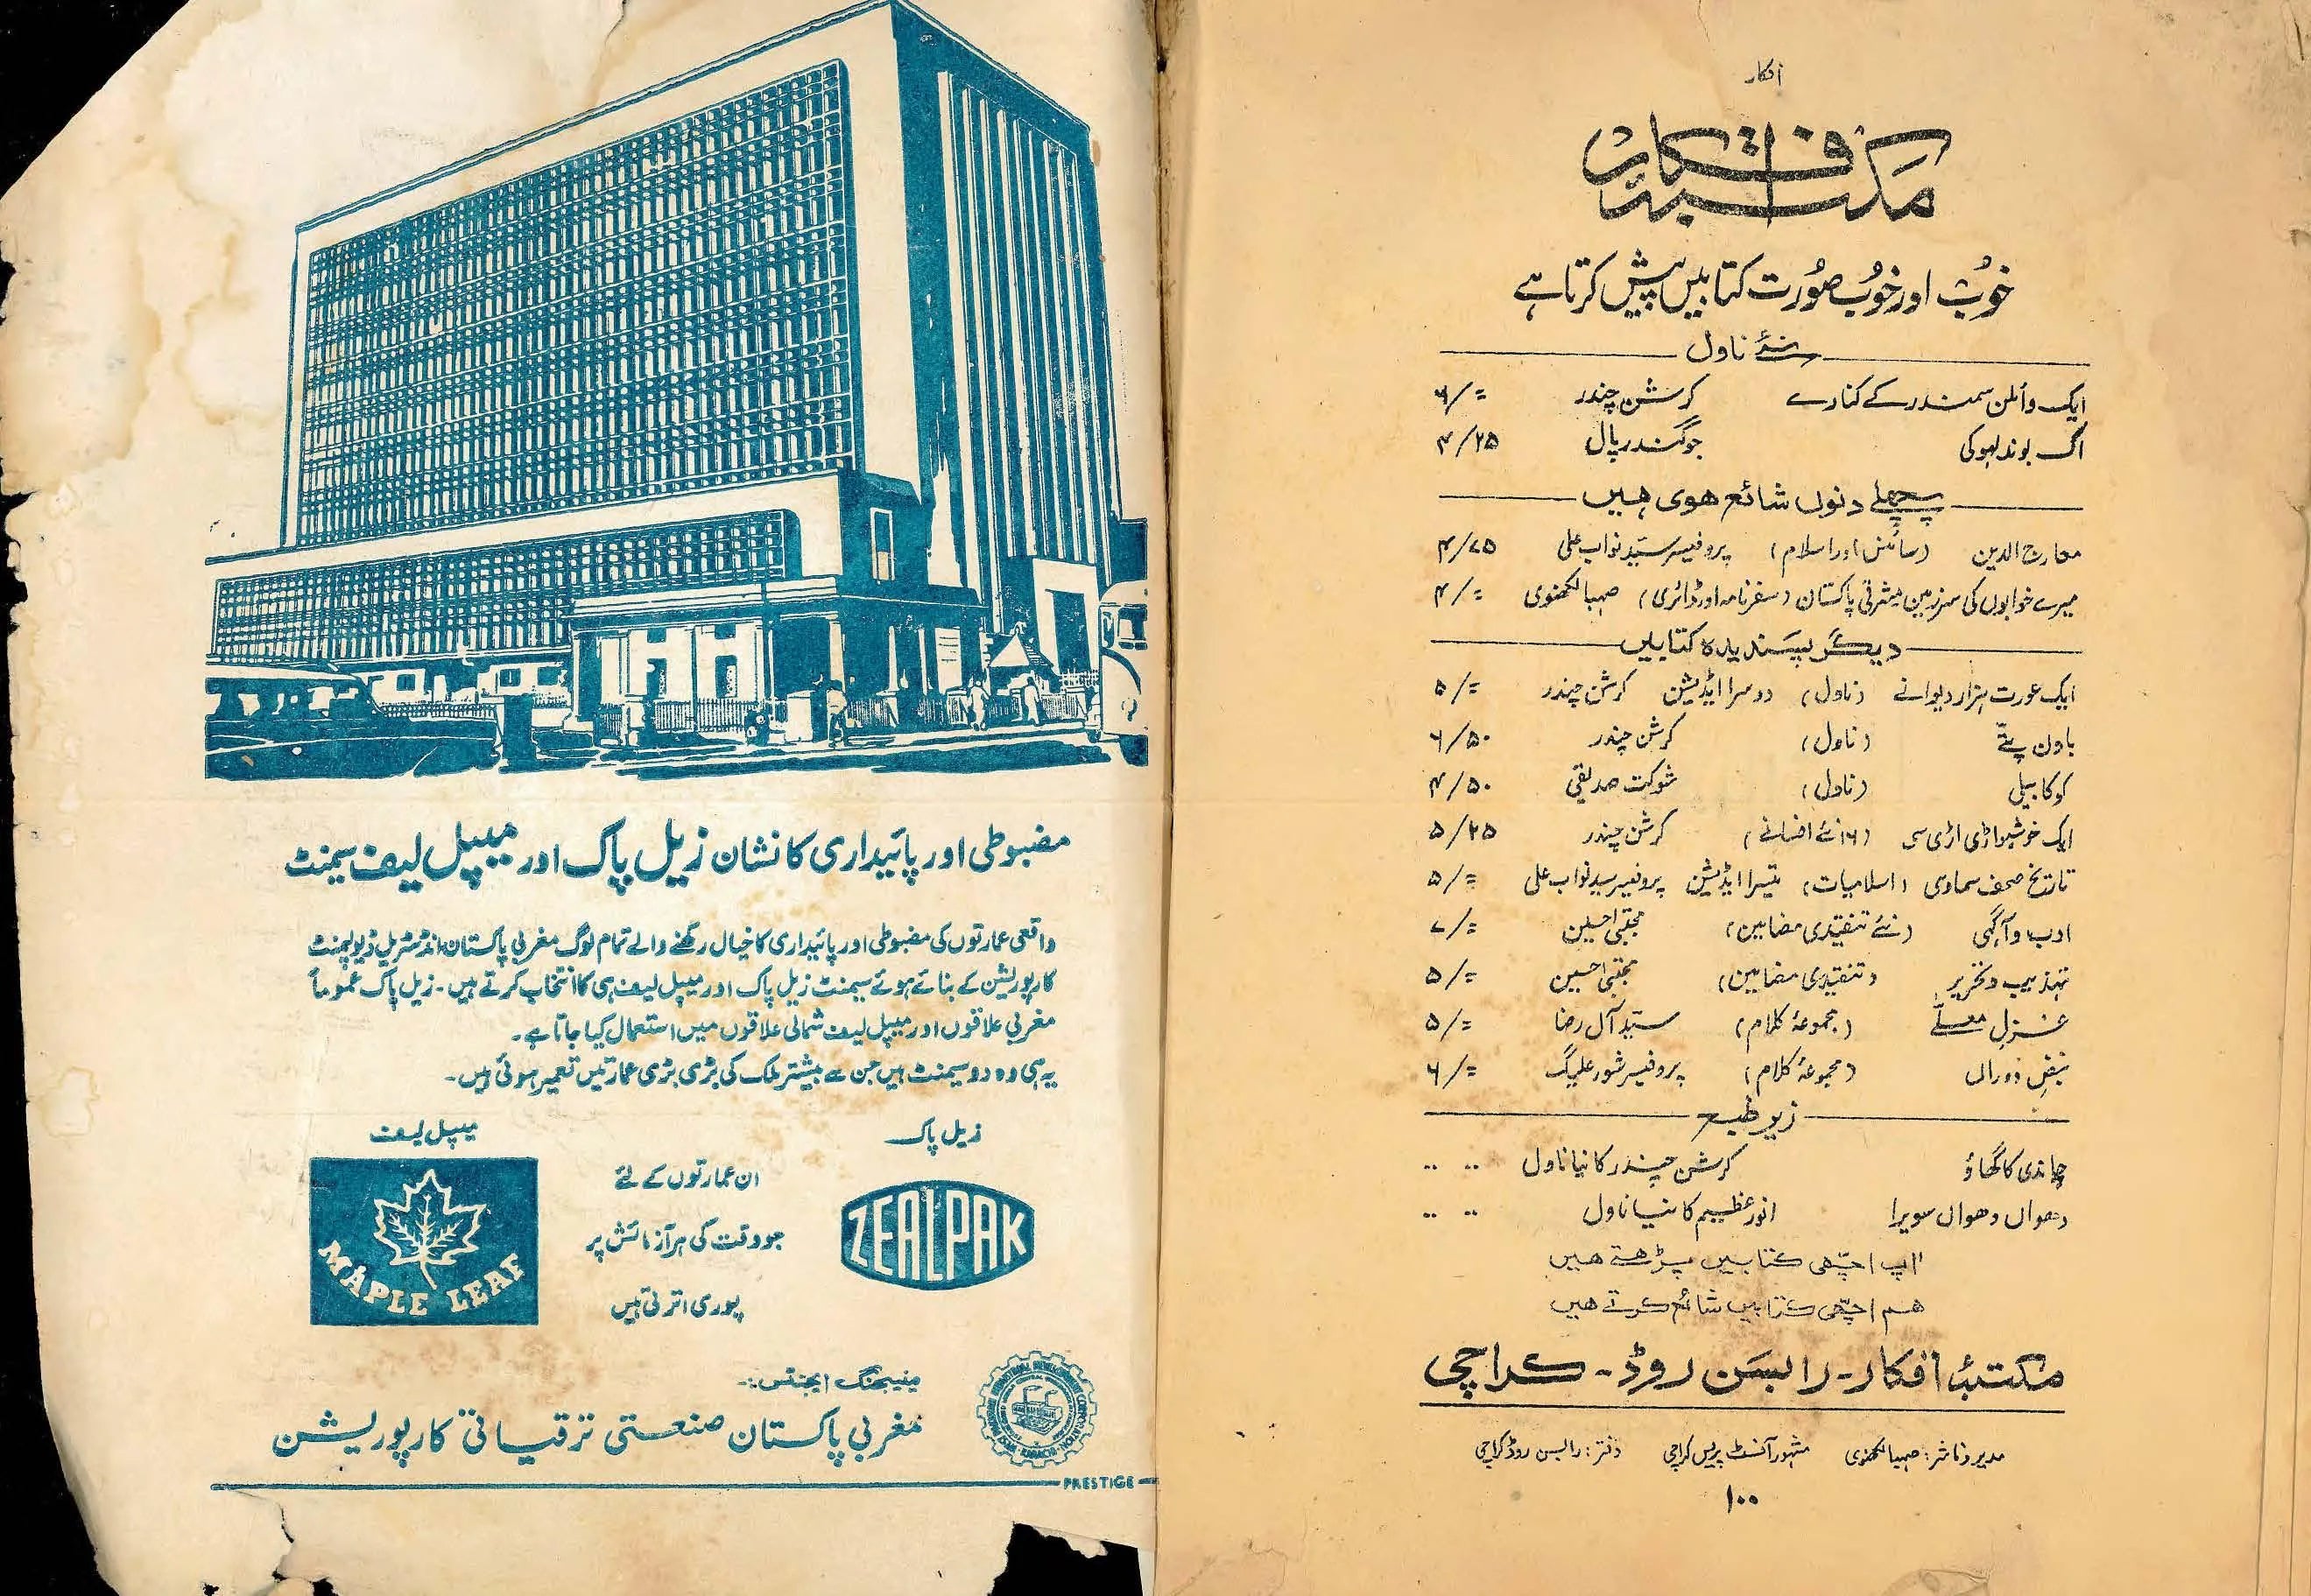 افکار
مکتبۂ افکار
خوب اور خوبصورت کتابیں پیش کرتا ہے
نئے ناول
ایک وائلن سمندر کے کنارے کرشن چندر ۶/=
اک بوند لہو کی جوگندر پال ۴/۲۵
پچھلے دنوں شائع ہوی ہیں
معارج الدین (سائنس اور اسلام) پروفیسر سیّد نواب علی ۴/۷۵
میرے خوابوں کی سرزمین مشرقی پاکستان (سفرنامہ اور ڈائری) صہبا لکھنوی ۴/=
دیگر پسندیدہ کتابیں
ایک عورت ہزار دیوانے (ناول) دوسرا ایڈیشن کرشن چندر ۵/=
باون پتّے (ناول) کرشن چندر ۶/۵۰
کوکا بیلی (ناول) شوکت صدیقی ۴/۵۰
ایک خوشبو اڑی اڑی سی (۱۶ نئے افسانے) کرشن چندر ۵/۲۵
تاریخ صحف سماوی (اسلامیات) تیسرا ایڈیشن پروفیسر سید نواب علی ۵/=
ادب و آگہی (نئے تنقیدی مضامین) مجتبیٰ حسین ۷/=
تہذیب و تحریر (تنقیدی مضامین) مجتبیٰ حسین ۵/=
غزلِ معلّےٰ (مجموعۂ کلام) سیّد آل رضا ۵/=
نبضِ دوراں (مجموعۂ کلام) پروفیسر شور علیگ ۶/=
زیر طبع
چاندی کا گھاؤ کرشن چندر کا نیا ناول
دھواں دھواں سویرا انور عظیم کا نیا ناول
آپ اچّھی کتابیں پڑھتے ہیں
ہم اچّھی کتابیں شائع کرتے ہیں
مکتبۂ افکار - رابسن روڈ - کراچی
مدیر و ناشر: صہبا لکھنوی مشہور آفسٹ پریس کراچی دفتر: رابسن روڈ کراچی
۱۰۰
مضبوطی اور پائیداری کا نشان زیل پاک اور میپل لیف سیمنٹ
واقعی عمارتوں کی مضبوطی اور پائیداری کا خیال رکھنے والے تمام لوگ مغربی پاکستان انڈسٹریل ڈیولپمنٹ
کارپوریشن کے بنائے ہوئے سیمنٹ زیل پاک اور میپل لیف ہی کا انتخاب کرتے ہیں۔ زیل پاک عموماً
مغربی علاقوں اور میپل لیف شمالی علاقوں میں استعمال کیا جاتا ہے۔
یہ ہی وہ دو سیمنٹ ہیں جن سے بیشتر ملک کی بڑی بڑی عمارتیں تعمیر ہوئی ہیں۔
زیل پاک
ZEALPAK
ان عمارتوں کے لئے
جو وقت کی ہر آزمائش پر
پوری اترتی ہیں
میپل لیف
MAPLE LEAF
WEST PAKISTAN INDUSTRIAL DEVELOPMENT CORPORATION · KARACHI
مینیجنگ ایجنٹس:-
مغربی پاکستان صنعتی ترقیاتی کارپوریشن
PRESTIGE